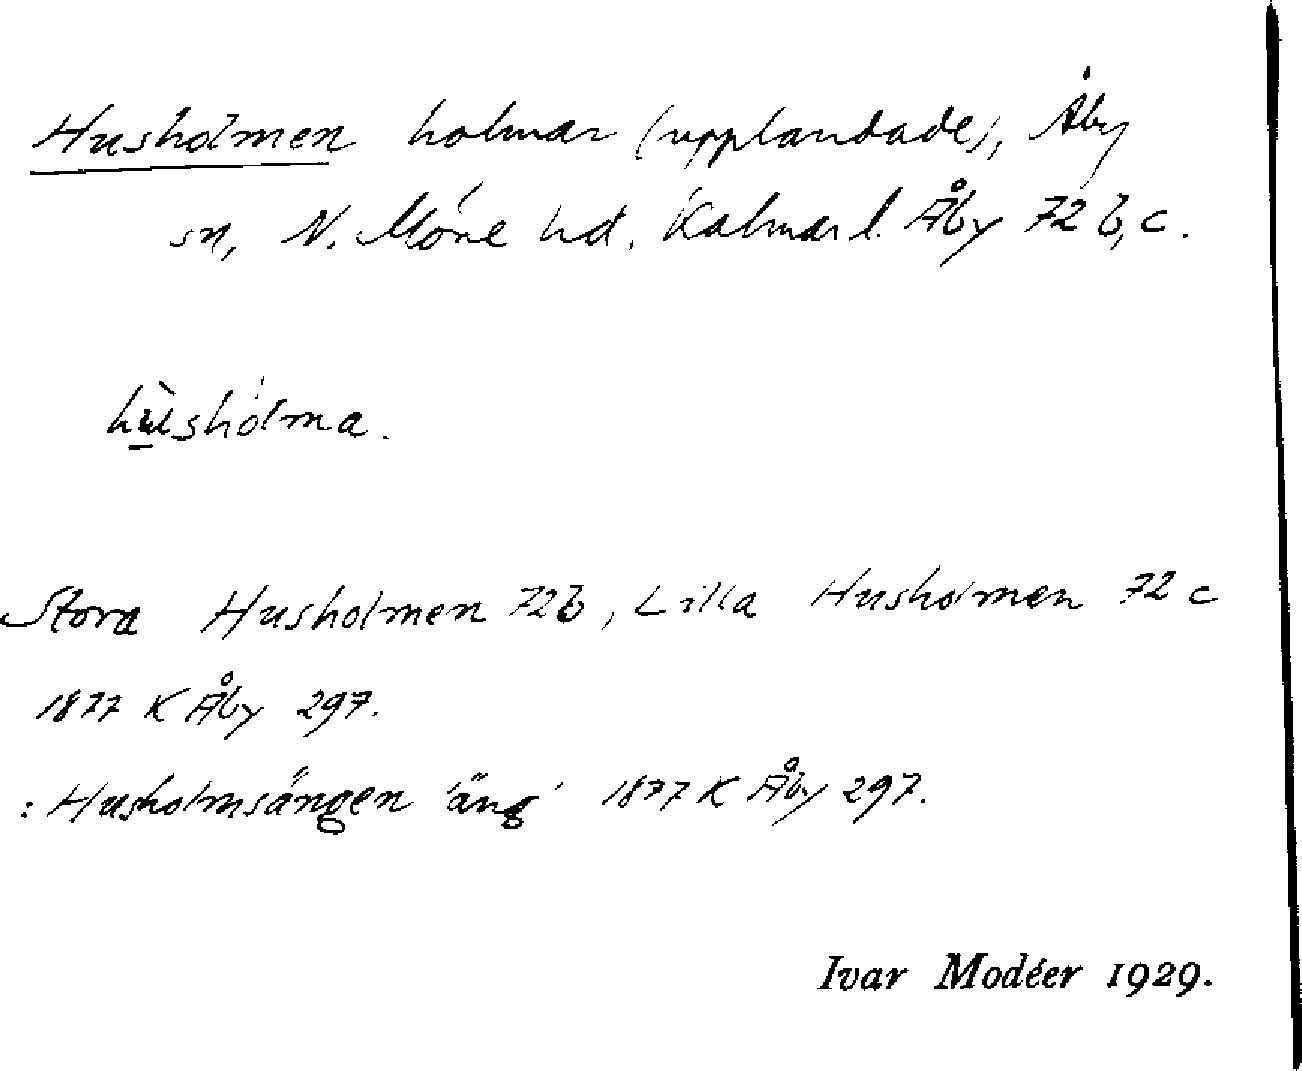 Husholmen holmar (upplandade), Åby
sn, N. Möre hd. Kalmar l. Åby 72 b, c.
hùshólma.
Stora Husholmen 72b, Lilla Husholmen 72 c
1877 K Åby 297.
: Husholmsängen 'äng' 1877 K Åby 297.
Ivar Modéer 1929.